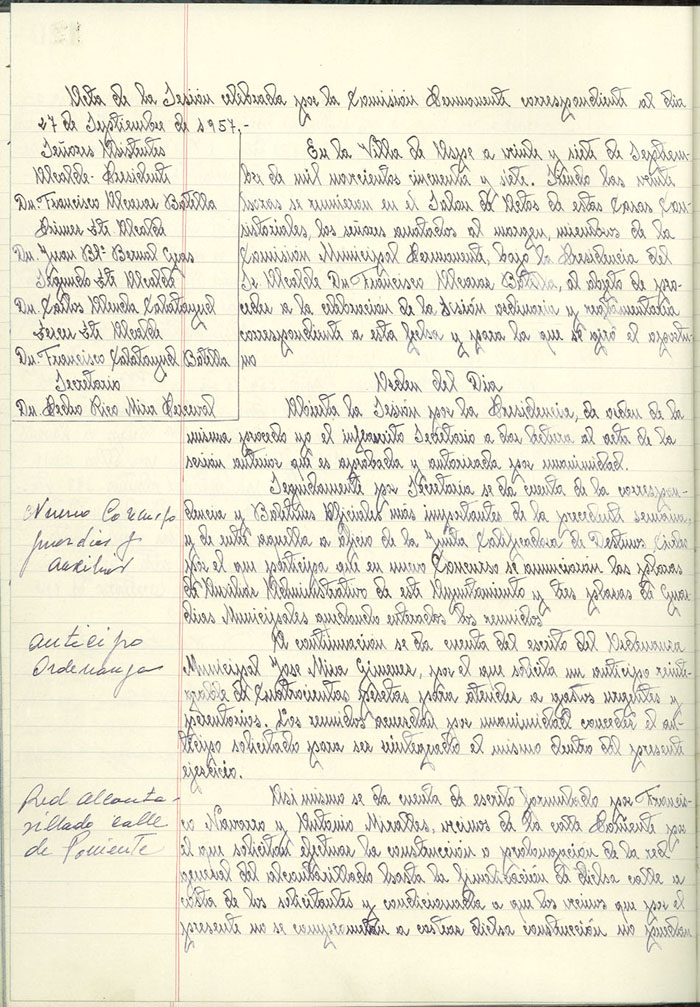 Acta de la Sesión celebrada por la Comisión Permanente correspondiente al dia
27 de Septiembre de 1957.-
Señores Asistentes
Alcalde-Presidente
Dn. Francisco Alcaraz Botella
Primer Tte Alcalde
Dn. Juan Bta Bernal
Segundo Tte Alcalde
Dn. Carlos Calatayud
Tercer Tte Alcalde
Dn. Francisco Calatayud Botella
Secretario
Dn. Pedro Rico Mira Perceval
En la Villa de Aspe a veinte y siete de Septiem-
bre de mil novecientos cincuenta y siete. Siendo las veinte
horas se reunieron en el Salon de Actos de estas Casas Con-
sistoriales, los señores anotados al margen, miembros de la
Comisión Municipal Permanente, bajo la Presidencia del
Sr Alcalde Dn. Francisco Alcaraz Botella, al objeto de pro-
ceder a la celebracion de la Sesión ordinaria y reglamentaria
correspondiente a esta fecha y para la que se giró el oportu-
no
Orden del Dia
Abierta la Sesión por la Presidencia, de orden de la
misma procedo yo el infrascrito Secretario a dar lectura al acta de la
sesión anterior que es aprobada y autorizada por unanimidad.
Seguidamente por Secretaria se da cuenta de la correspon-
dencia y Boletines Oficiales mas importantes de la precedente semana
y de entre aquella a oficio de la Junta Calificadora de Destinos Civiles
por el que participa que en nuevo Concurso se anunciaran las plazas
de Auxiliar Administrativo de este Ayuntamiento y tres plazas de Guar-
dias Municipales quedando enterados los reunidos
Nuevo Concurso
guardias y
auxiliar
A continuación se da cuenta del escrito del Ordenanza
Municipal Jose Mira Gimenez, por el que solicita un anticipo reinte-
grable de cuatrocientas pesetas para atender a gastos urgentes y
perentorios. Los reunidos acuerdan por unanimidad conceder el an-
ticipo solicitado para ser reintegrado el mismo dentro del presente
ejercicio.
anticipo
Ordenanza
Asi mismo se da cuenta de escrito formulado por Francis-
co Navarro y Antonio Miralles, vecinos de la calle Poniente por
el que solicitan efectuar la construcción o prolongación de la red
general del alcantarillado hasta la finalización de dicha calle a
costa de los solicitantes y condicionada a que los vecinos que por el
presente no se comprometan a costear dicha construcción no puedan
Red alcanta-
rillado calle
de Poniente